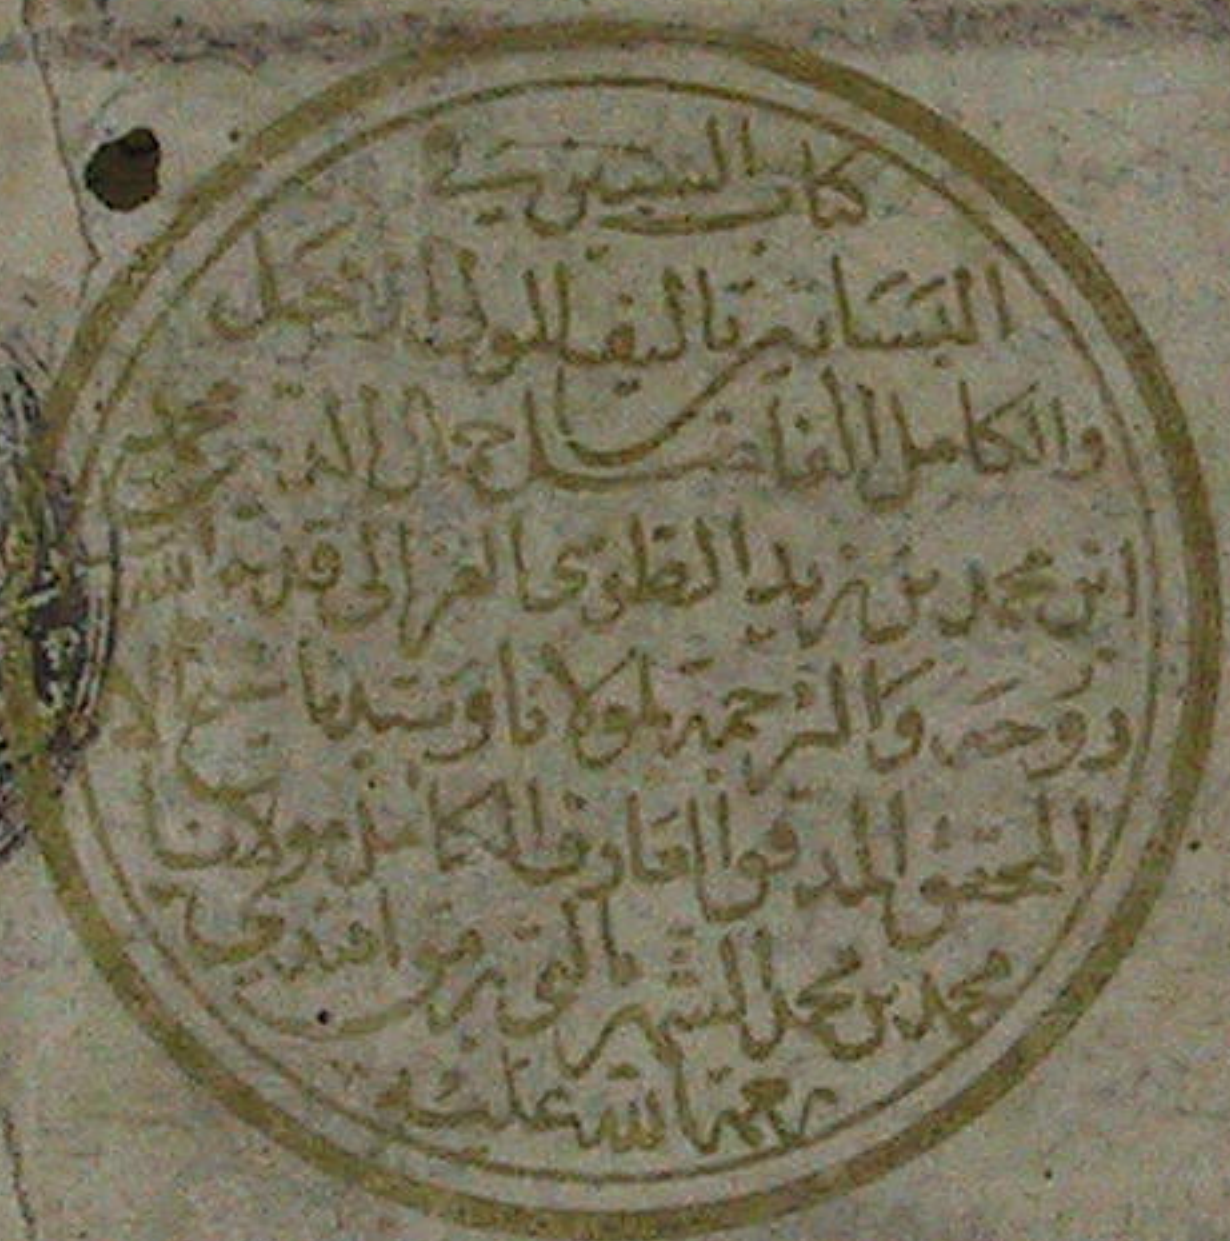 كتاب الستين في
البساتين تأليف المولى الاجل
والكامل الفاضل جمال الدين محمد
ابن محمد بن زيد الطوسي الغزالي قدس الله
روحه والترجمة لمولانا وسيدنا شيخ
المحقق المدقق العارف الكامل مولانا
محمد بن محمد الشهير افندي
رحمة الله عليه